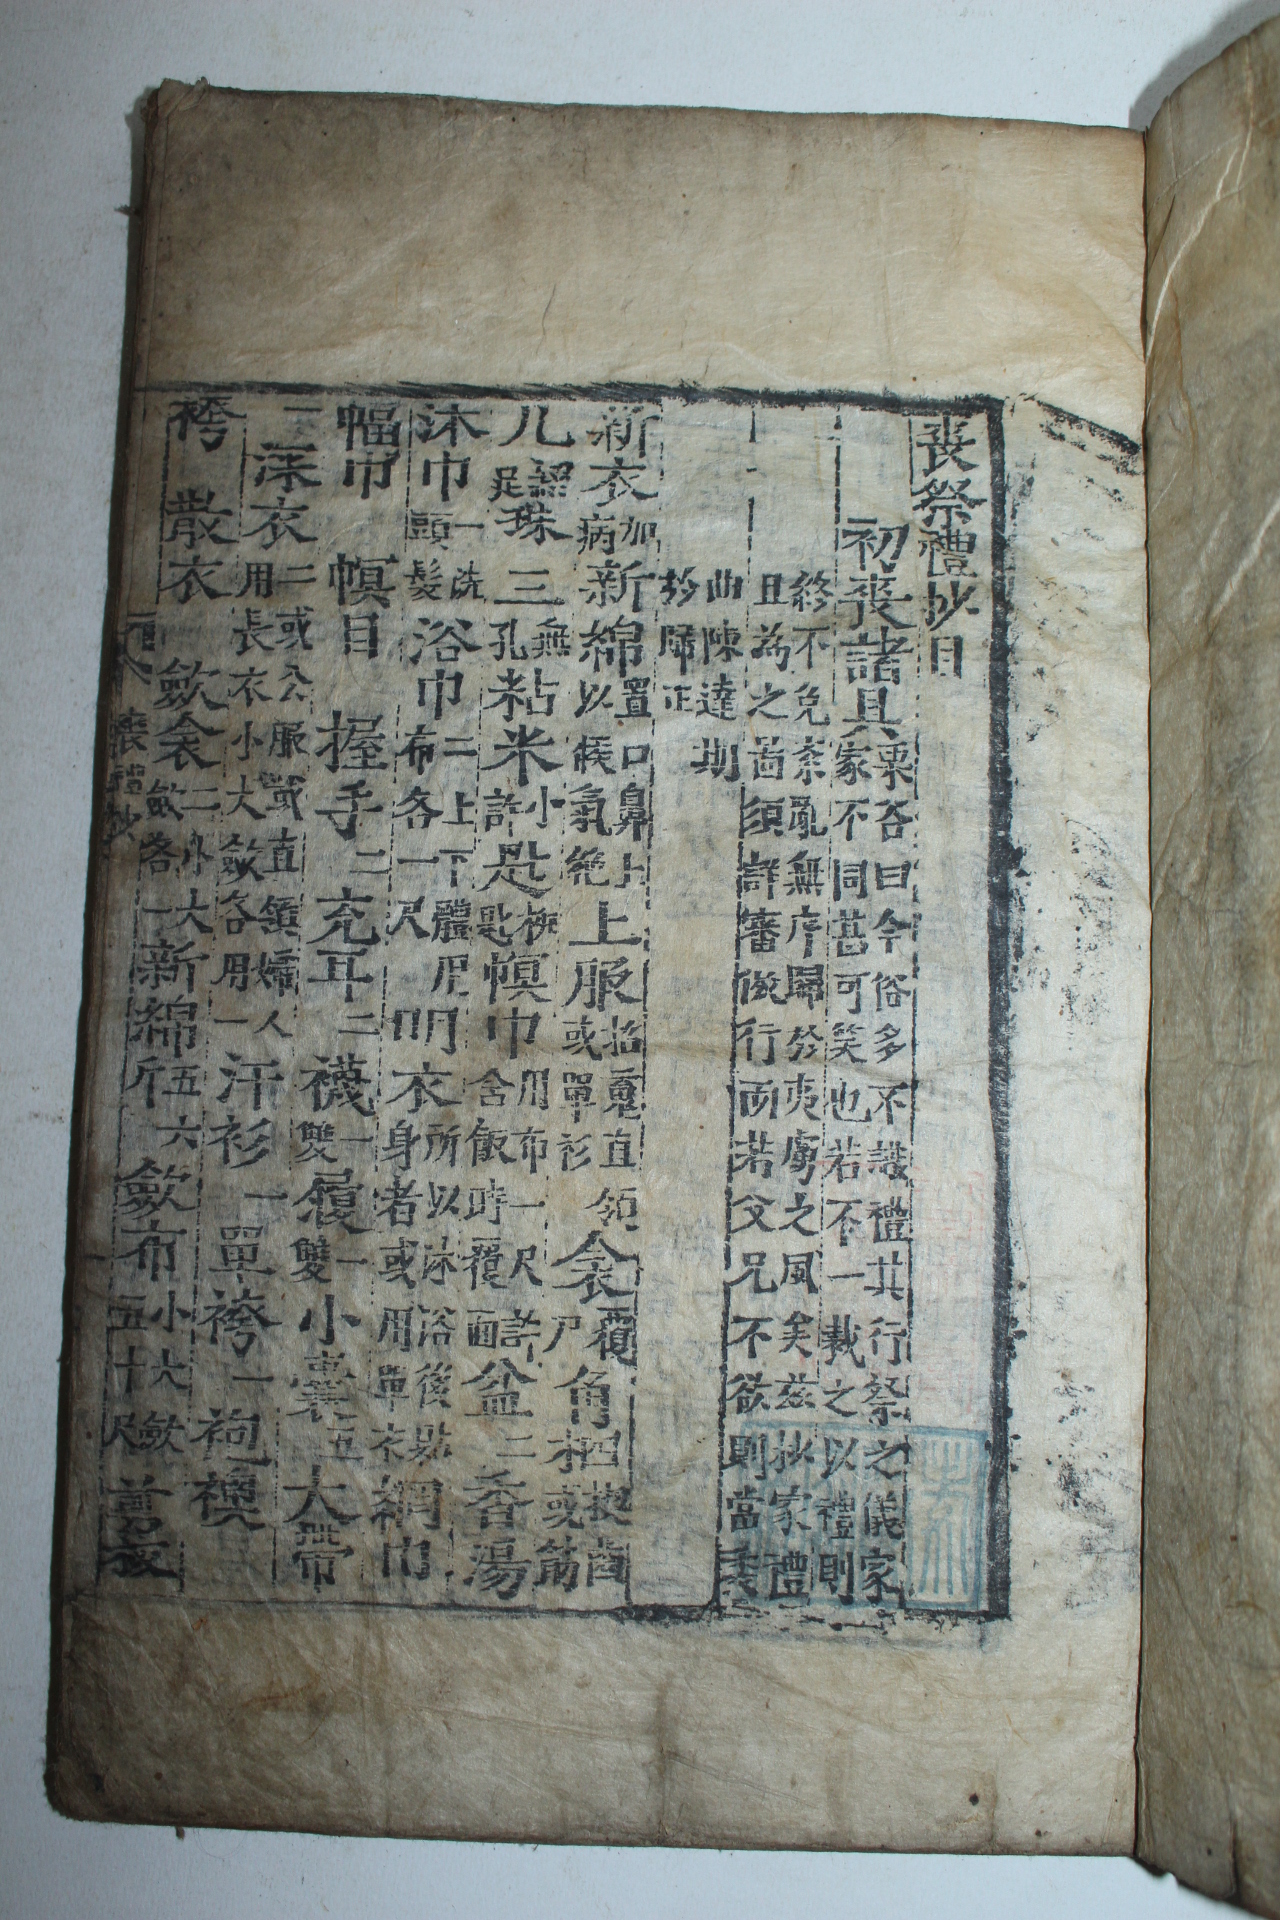 喪祭禮抄目
初喪諸具 栗谷曰今俗多不識禮其行祭之儀家
家不同甚可笑也若不一裁之以禮則
終不免紊亂無序歸於夷虜之風矣茲抄家禮
且為之啚須詳審倣行而若父兄不欲則當委
曲陳達期
於歸正
新衣 加病 新綿 置口鼻上以候氣絶 上服 招魂直領或單衫 衾 覆尸 角柶 楔齒或筯
几 綴足 珠三 無孔 粘米 小許 匙 柳匙 幎巾 用布一尺許含飯時覆面 盆二 香湯
沐巾 一洗頭髮 浴巾 二上下體用布各一尺 明衣 所以沐浴後貼身者或用單衣 網巾
幅巾 幎目 握手 二 充耳 二 襪 一雙 履 一雙 小囊 五 大帶
一 深衣 二或公服或直領婦人用長衣小大斂各用一 汗衫 一 單袴 一 袍襖
袴 散衣 斂衾 二小大斂各一 新綿 五六斤 斂布 小大斂五十尺
喪禮抄